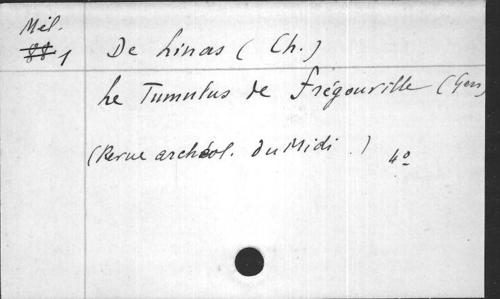 Mél.
88 1 De Linas (Ch.)
Le Tumulus de Frégouville (Gers)
(Revue archéol. du Midi.) 4º